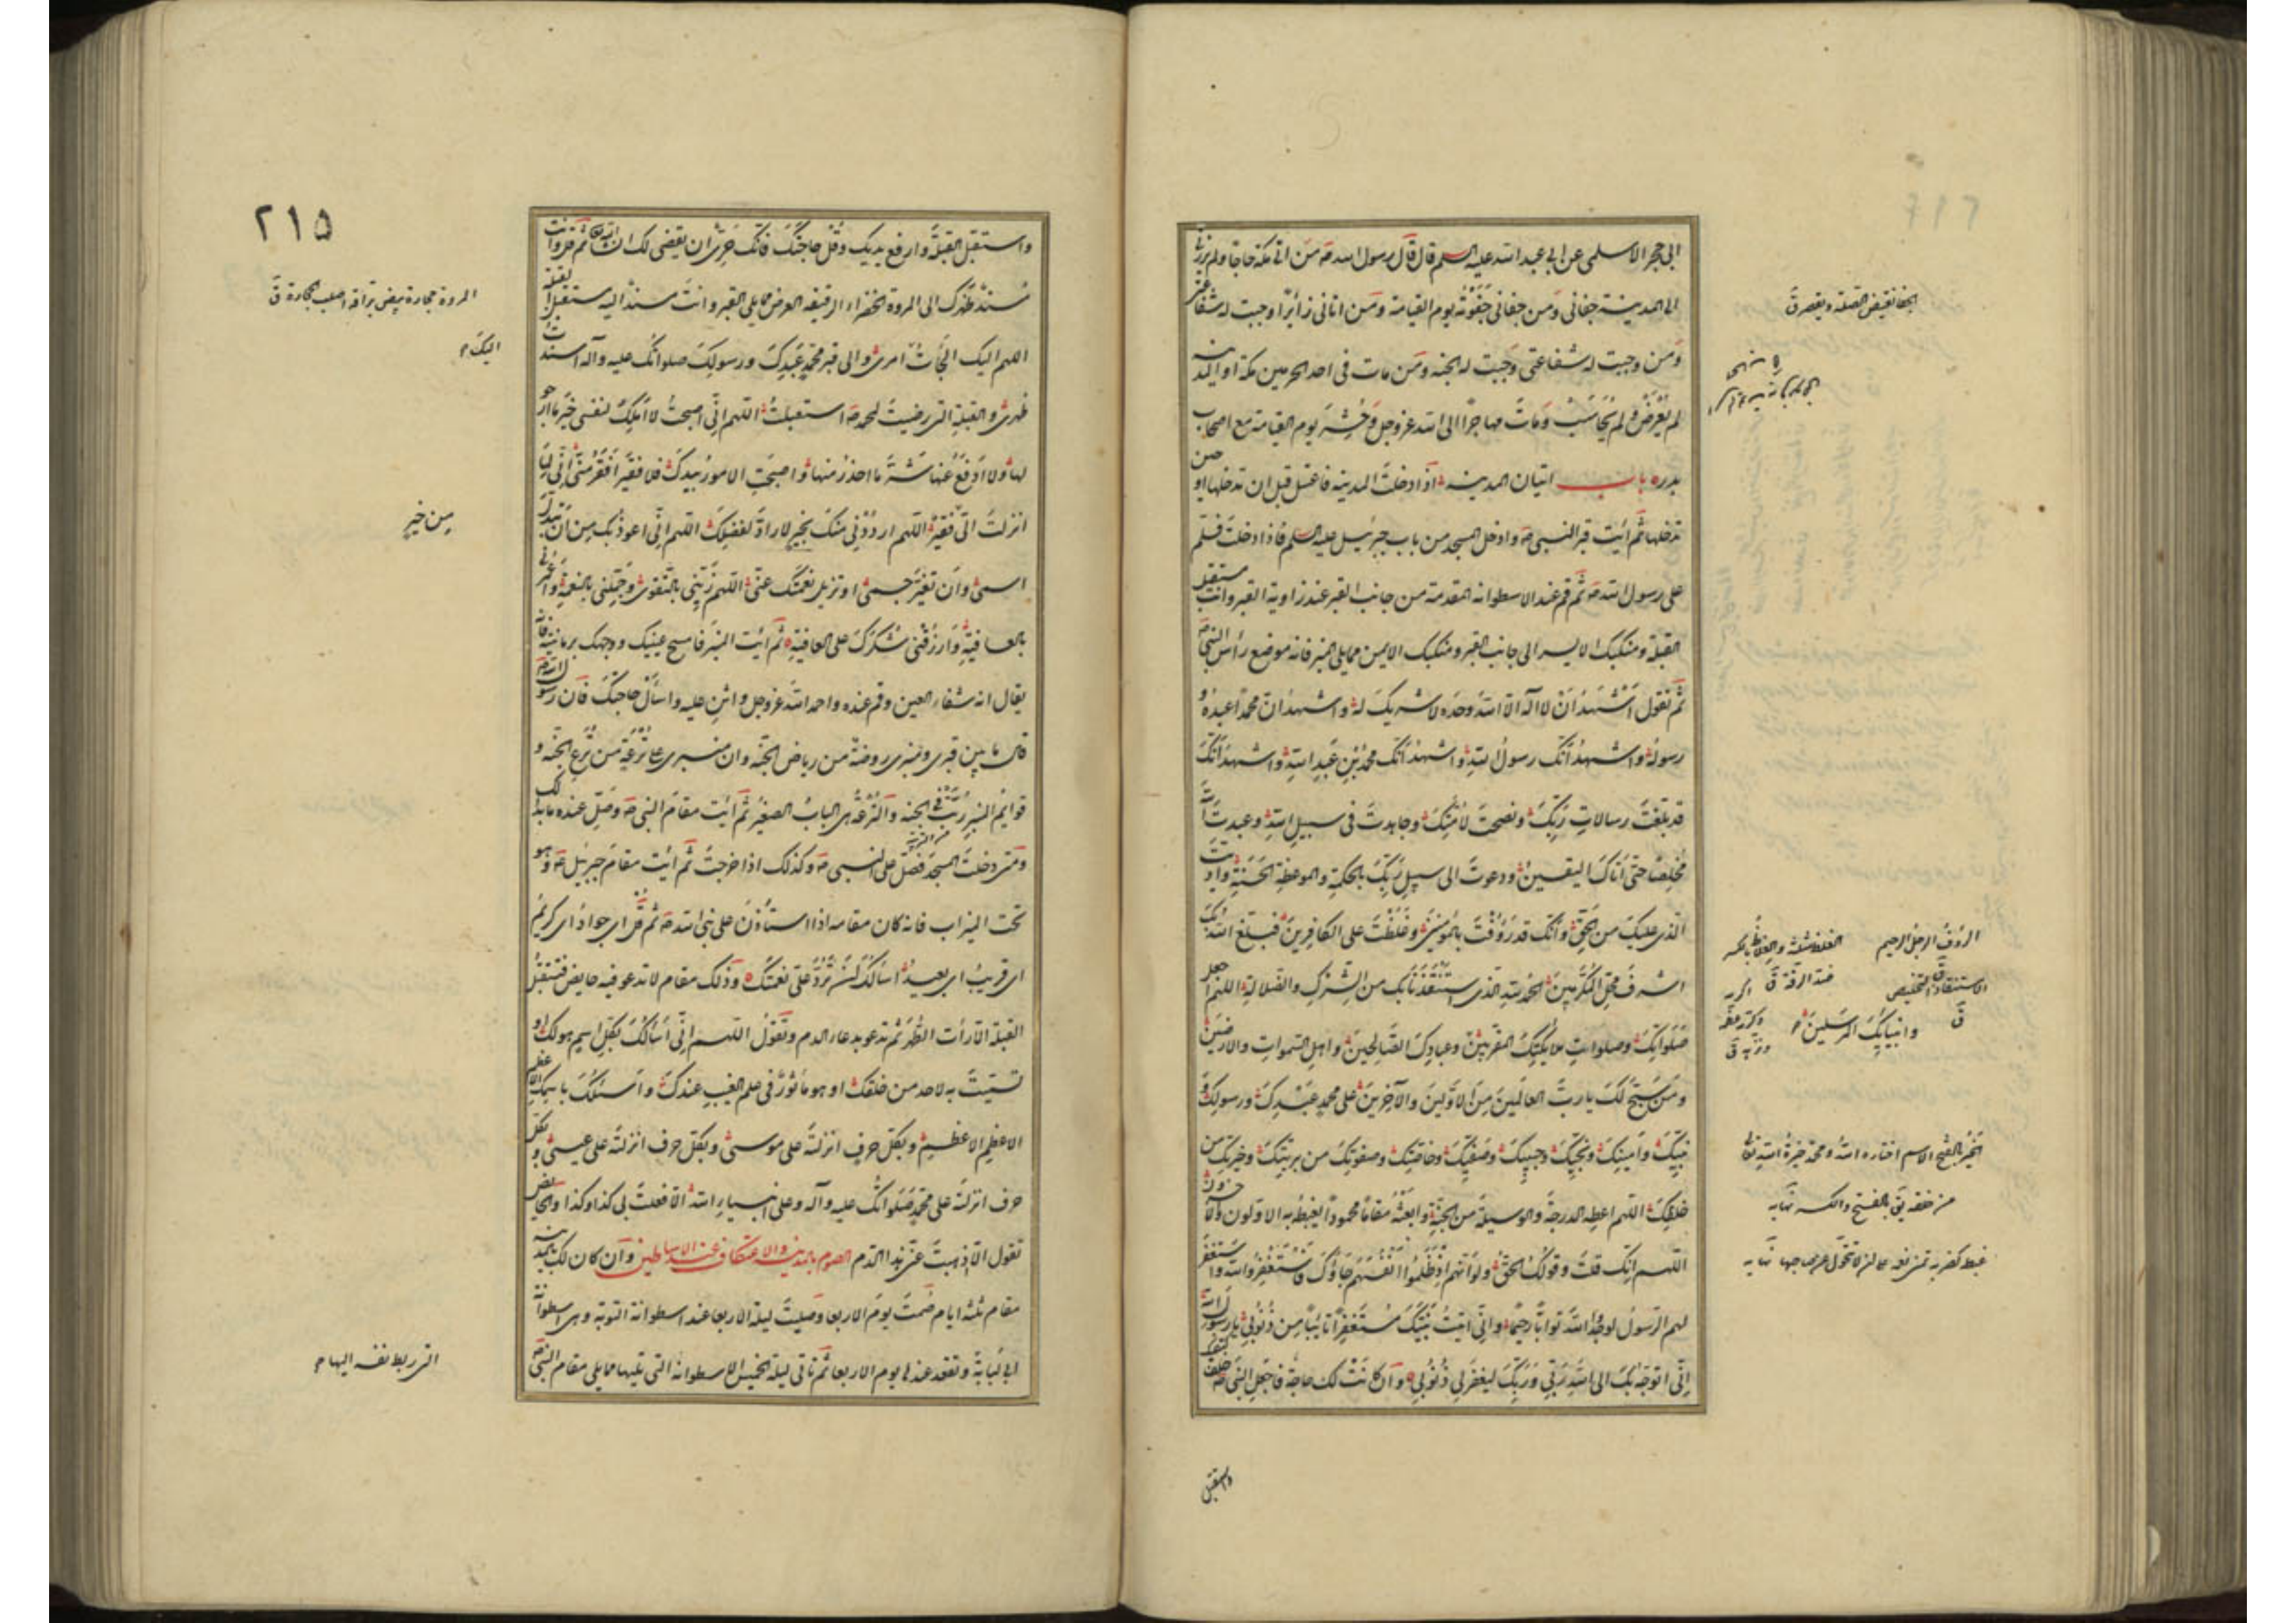 ابى حجر الاسلمى عن ابى عبد الله عليه السلم قال قال رسول الله صه من اتى مكة حاجا ولم يزرنى
الى المدينة جفانى ومن جفانى جفوته يوم القيامة ومن اتانى زائرا وجبت له شفاعتى
ومن وجبت له شفاعتى وجبت له الجنة ومن مات فى احد الحرمين مكة او المدينة
لم يعرض ولم يحاسب ومات مهاجرا الى الله عز وجل وحشر يوم القيامة مع اصحاب
بدر باب اتيان المدينة اذا دخلت المدينة فاغتسل قبل ان تدخلها او حين
تدخلها ثم ائت قبر النبى صه وادخل المسجد من باب جبرئيل عليه السلم فاذا دخلت فسلم
على رسول الله صه ثم قم عند الاسطوانة المقدمة من جانب القبر عند زاوية القبر وانت مستقبل
القبلة ومنكبك الايسر الى جانب القبر ومنكبك الايمن مما يلى المنبر فانه موضع رأس النبى صه
ثم تقول اشهد ان لا اله الا الله وحده لا شريك له واشهد ان محمدا عبده و
رسوله واشهد انك رسول الله واشهد انك محمد بن عبد الله واشهد انك
قد بلغت رسالات ربك ونصحت لامتك وجاهدت فى سبيل الله وعبدت الله
مخلصا حتى اتاك اليقين ودعوت الى سبيل ربك بالحكمة والموعظة الحسنة واديت
الذى عليك من الحق وانك قد رؤفت بالمؤمنين وغلظت على الكافرين فبلغ الله بك
اشرف محل المكرمين الحمد لله الذى استنقذنا بك من الشرك والضلالة اللهم اجعل
صلواتك وصلوات ملائكتك المقربين وعبادك الصالحين واهل السموات والارضين
ومن سبح لك يا رب العالمين من الاولين والآخرين على محمد عبدك ورسولك و
نبيك وامينك ونجيك وحبيبك وصفيك وخاصتك وصفوتك من بريتك وخيرتك من
خلقك اللهم اعطه الدرجة والوسيلة من الجنة وابعثه مقاما محمودا يغبطه به الاولون والآخرون
اللهم انك قلت وقولك الحق ولو انهم اذ ظلموا انفسهم جاؤك فاستغفروا الله واستغفر
لهم الرسول لوجدوا الله توابا رحيما وانى اتيت نبيك مستغفرا تائبا من ذنوبى يا رسول الله
انى اتوجه بك الى الله ربى وربك ليغفر لى ذنوبى وان كانت لك حاجة فاجعل النبى صه خلف كتفك
الجفا نقيض الصلة ويقصر ق
الرؤف الرجل الرحيم
وانبيائك المرسلين
واستقبل
٢١٥
واستقبل القبلة وارفع يديك وقل حاجتك فانك حرى ان يقضى لك ان شاء الله ثم قل وانت
مسند ظهرك الى المروة الخضراء الرقيقة العرض مما يلى القبر وانت مسند اليه مستقبل القبلة
اللهم اليك الجأت امرى والى قبر محمد عبدك ورسولك صلواتك عليه وآله اسندت
ظهرى والقبلة التى رضيت لمحمد صه استقبلت اللهم انى اصبحت لا املك لنفسى خير ما ارجو
لها ولا ادفع عنها شر ما احذر منها واصبحت الامور بيدك فلا فقير افقر منى انى لما
انزلت الى فقير اللهم ارددنى منك بخير لا راد لفضلك اللهم انى اعوذ بك من ان تبدل
اسمى وان تغير جسمى او تزيل نعمتك عنى اللهم زينى بالتقوى وجملنى بالنعمة واعمرنى
بالعافية وارزقنى شكرك على العافية ثم ائت المنبر فامسح عينيك ووجهك برمانتيه فانه
يقال انه شفاء العين وقم عنده واحمد الله عز وجل واثن عليه واسأل حاجتك فان رسول الله صه
قال ما بين قبرى ومنبرى روضة من رياض الجنة وان منبرى على ترعة من ترع الجنة و
قوايم المنبر ربت فى الجنة والترعة هى الباب الصغير ثم ائت مقام النبى صه وصل عنده ما بدا لك
ومتى دخلت المسجد فصل على النبى صه وكذلك اذا خرجت ثم ائت مقام جبرئيل صه وهو
تحت الميزاب فانه كان مقامه اذا استأذن على نبى الله صه ثم قل اى جواد اى كريم
اى قريب اى بعيد اسألك ان ترد على نعمتك وذلك مقام لا تدعو فيه حايض فتستقبل
القبلة الا رأت الطهر ثم تدعو بدعاء الدم وتقول اللهم انى اسألك بكل اسم هو لك او
تسميت به لاحد من خلقك او هو مأثور فى علم الغيب عندك واسئلك باسمك الاعظم
الاعظم الاعظم وبكل حرف انزلته على موسى وبكل حرف انزلته على عيسى وبكل
حرف انزلته على محمد صلواتك عليه وآله وعلى انبياء الله الا فعلت بى كذا وكذا والحايض
تقول الا اذهبت عنى هذا الدم الصوم بالمدينة والاعتكاف عند الاساطين وان كان لك بالمدينة
مقام ثلثة ايام صمت يوم الاربعا وصليت ليلة الاربعا عند اسطوانة التوبة وهى اسطوانة
ابى لبابة وتقعد عندها يوم الاربعا ثم تاتى ليلة الخميس الاسطوانة التى تليها مما يلى مقام النبى صه
المروة حجارة بيض براقة اصلب الحجارة ق
اليك
من خير
التى ربط نفسه اليها